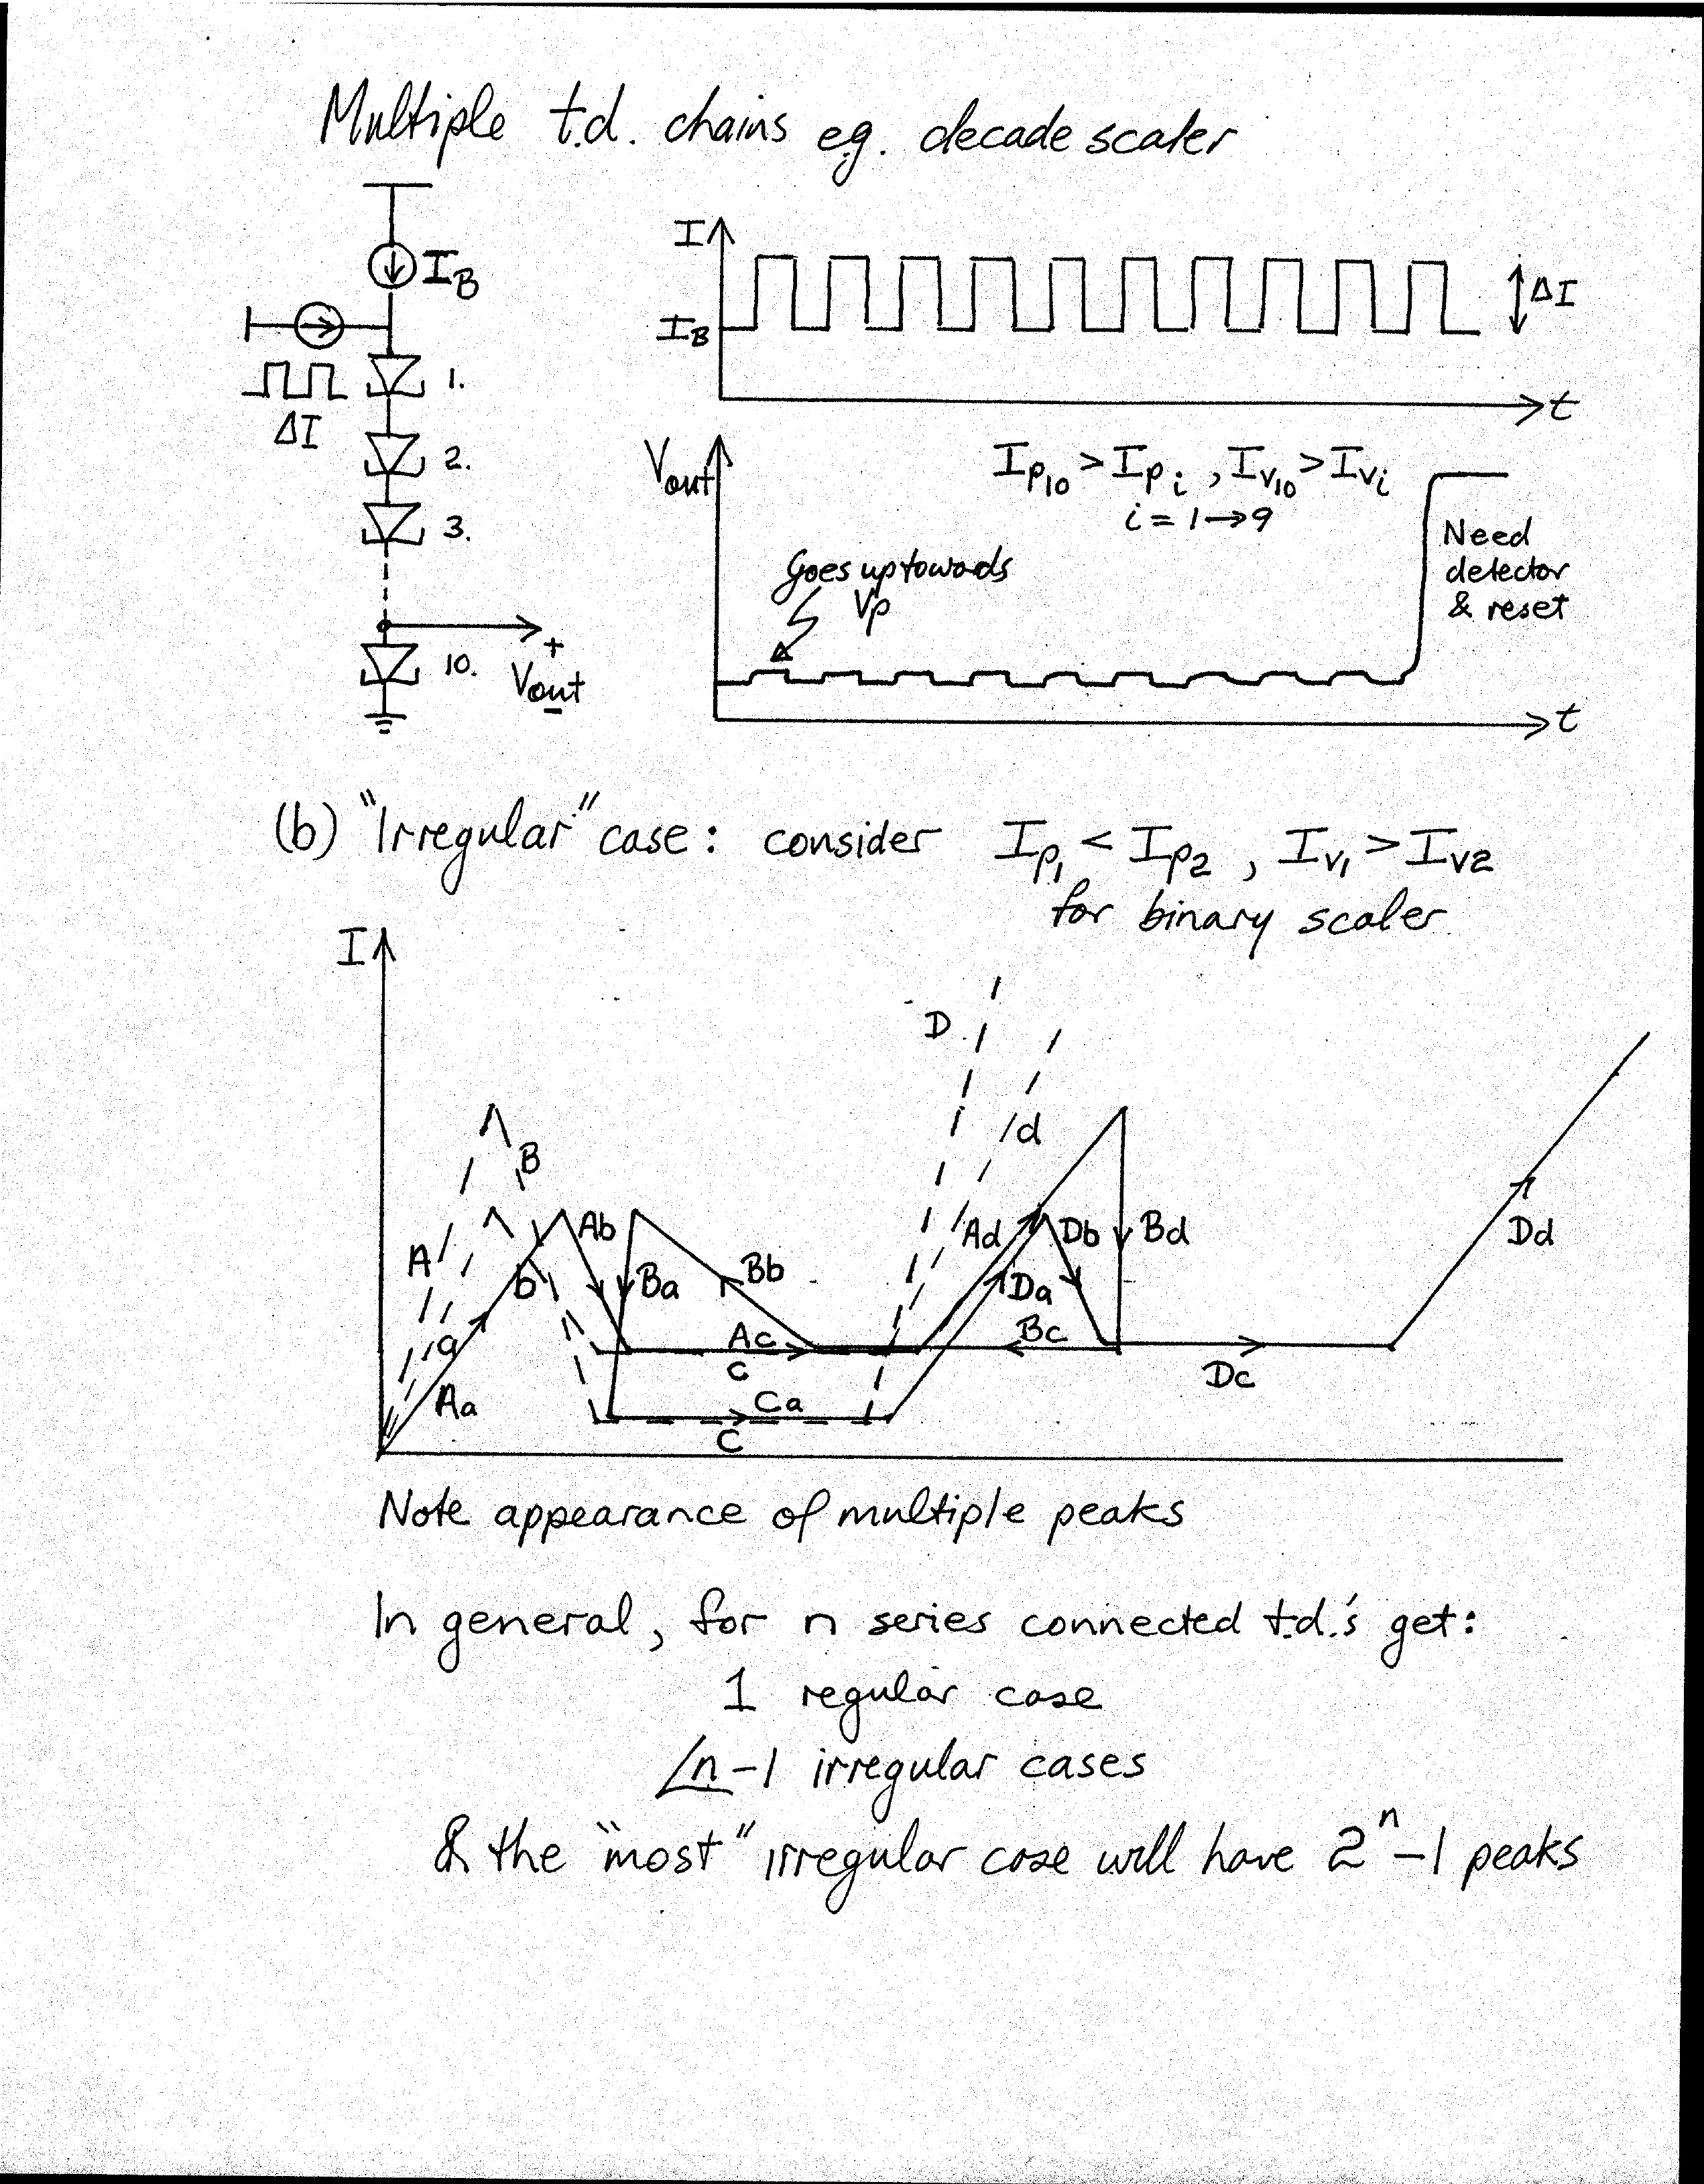 Multiple t.d. chains e.g. decade scaler
I_B
ΔI
1.
2.
3.
10.
+
Vout
−
I
I_B
ΔI
t
Vout
I_P10 > I_Pi , I_V10 > I_Vi
i = 1→9
Goes up towards
Vp
Need
detector
& reset
t
(b) "Irregular" case: consider I_P1 < I_P2 , I_V1 > I_V2
for binary scaler
I
D
d
B
A
Ab
Ad
Db
Bd
Dd
b
Ba
Bb
Da
a
Ac
Bc
c
Dc
Aa
Ca
C
Note appearance of multiple peaks
In general, for n series connected t.d.'s get:
1 regular case
∠n -1 irregular cases
& the "most" irregular case will have 2^n -1 peaks